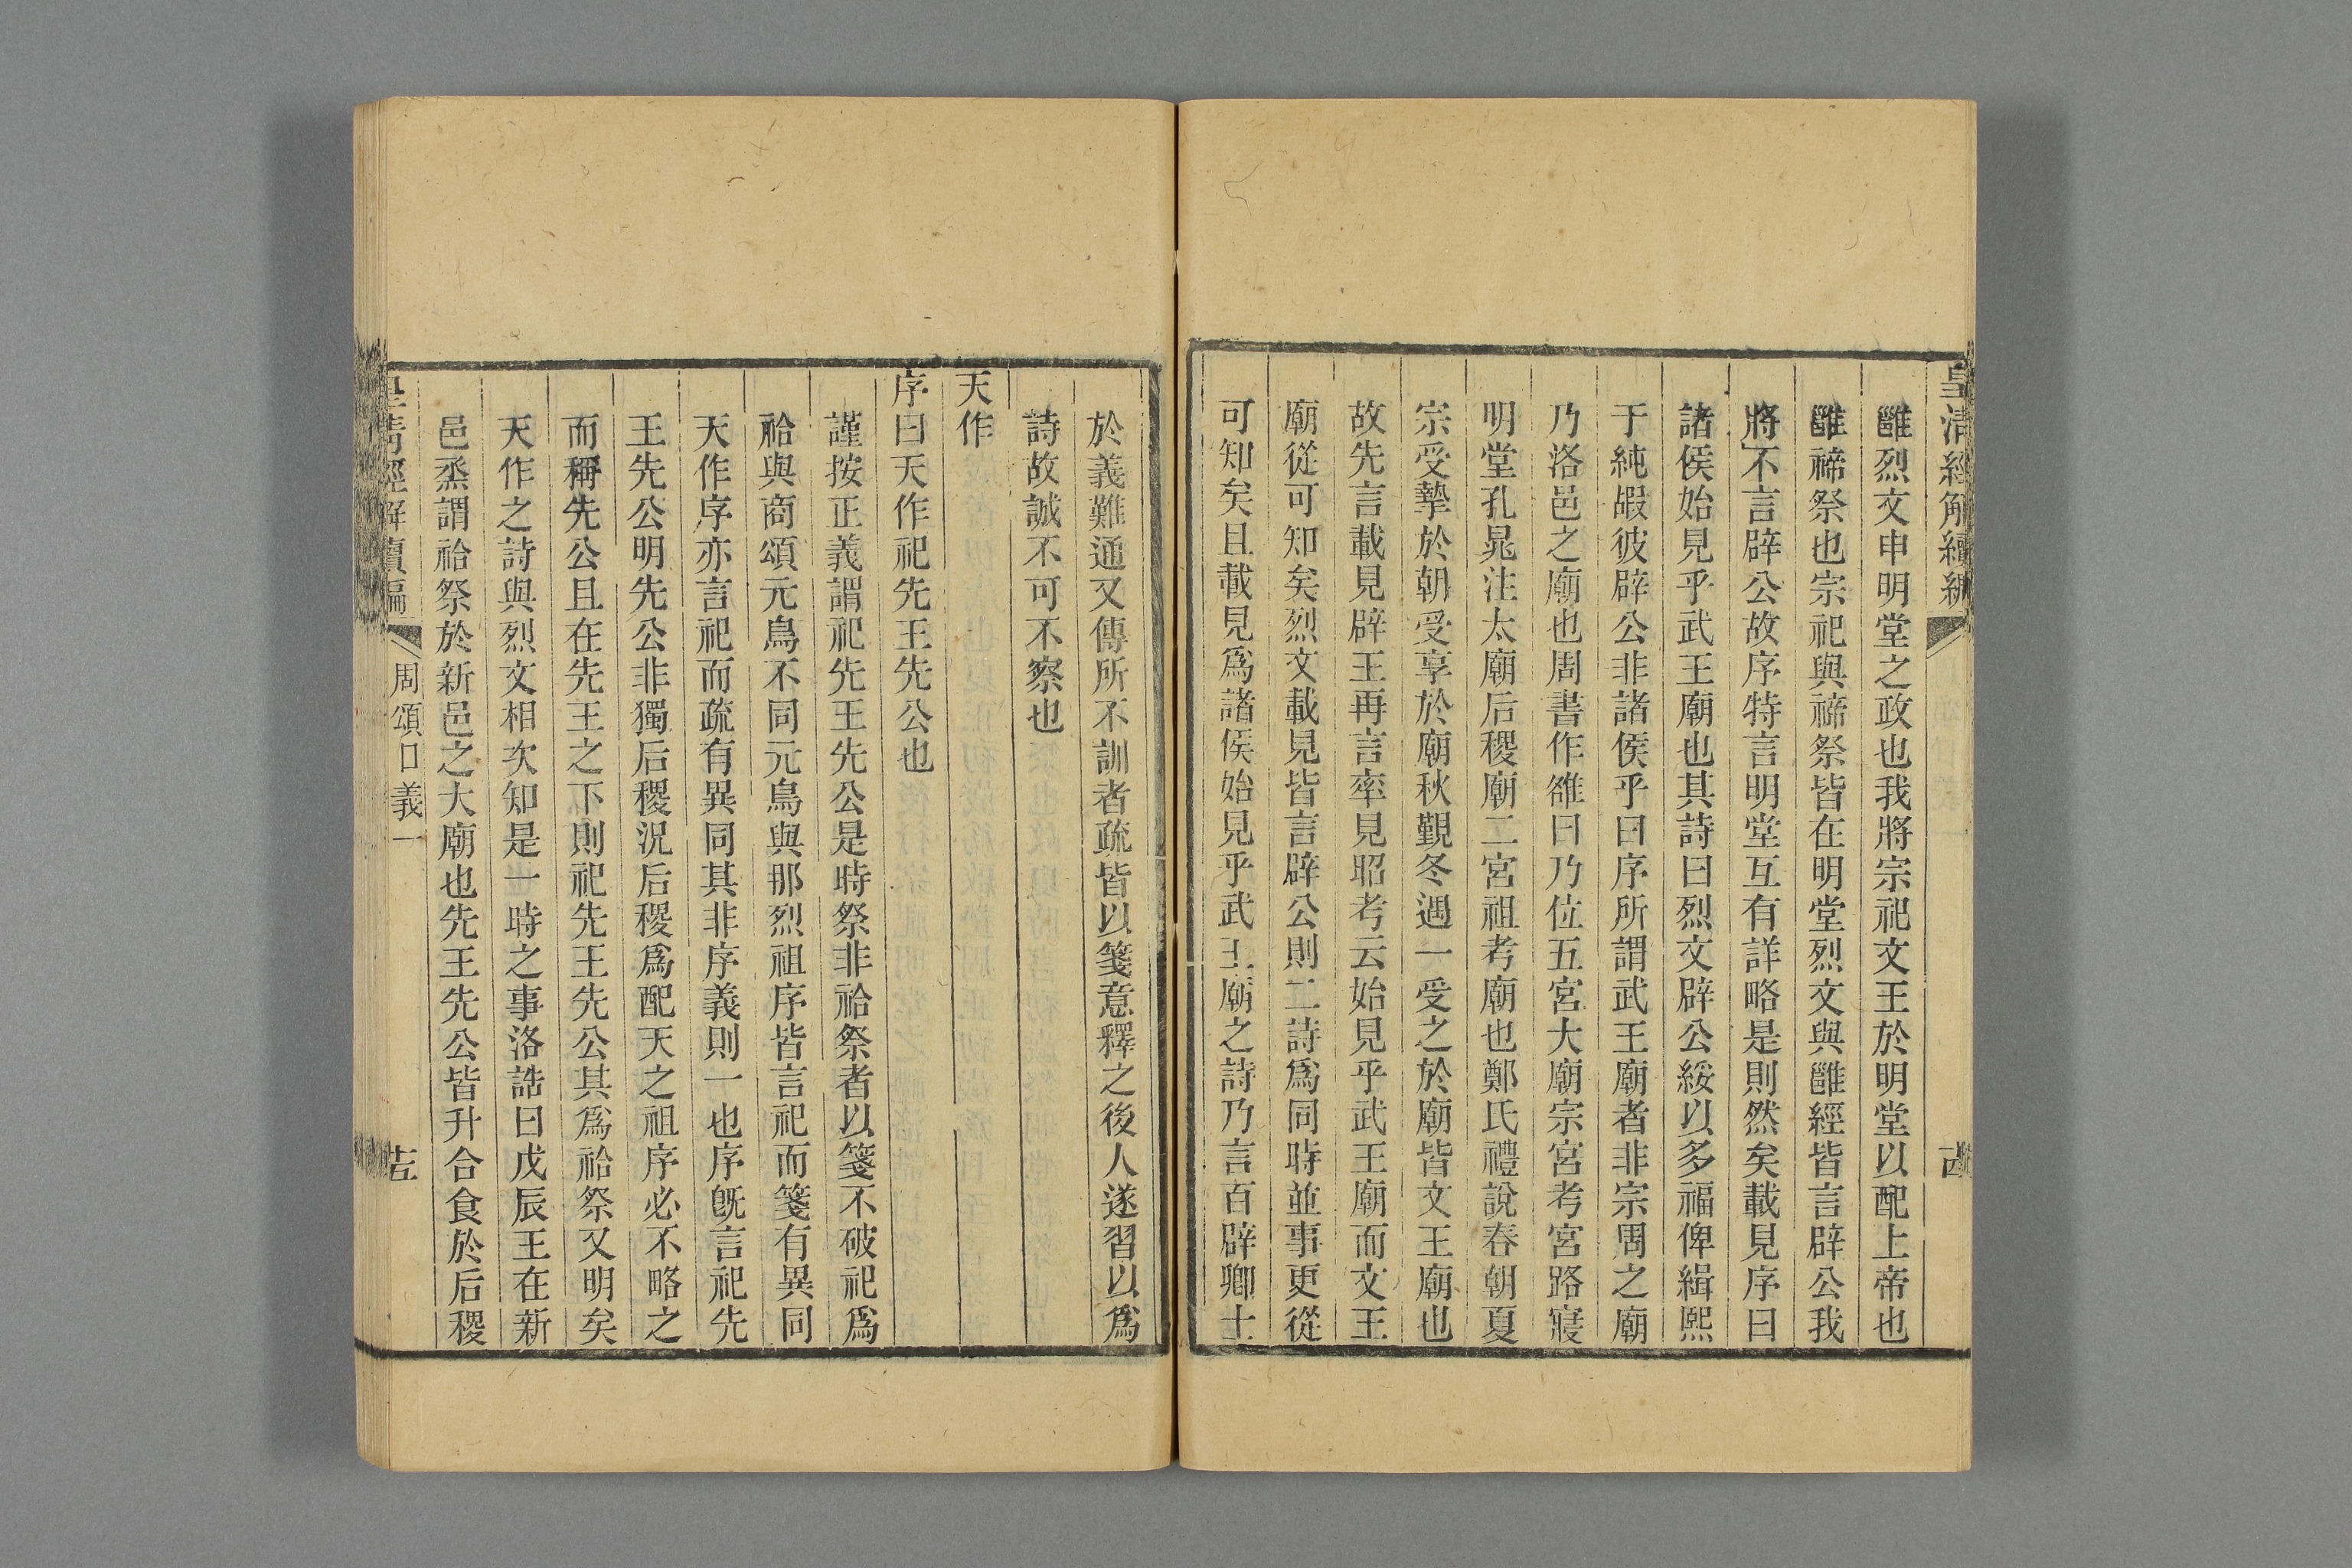 皇清經解續編
雝烈文申明堂之政也我將宗祀文王於明堂以配上帝也
雝禘祭也宗祀與禘祭皆在明堂烈文與雝經皆言辟公我
將不言辟公故序特言明堂互有詳略是則然矣載見序曰
諸侯始見乎武王廟也其詩曰烈文辟公綏以多福俾緝熙
于純嘏彼辟公非諸侯乎曰序所謂武王廟者非宗周之廟
乃洛邑之廟也周書作雒曰乃位五宮大廟宗宮考宮路寢
明堂孔晁注太廟后稷廟二宮祖考廟也鄭氏禮說春朝夏
宗受摯於朝受享於廟秋覲冬遇一受之於廟皆文王廟也
故先言載見辟王再言率見昭考云始見乎武王廟而文王
廟從可知矣烈文載見皆言辟公則二詩爲同時並事更從
可知矣且載見爲諸侯始見乎武王廟之詩乃言百辟卿士
於義難通又傳所不訓者疏皆以箋意釋之後人遂習以爲
詩故誠不可不察也
天作
序曰天作祀先王先公也
謹按正義謂祀先王先公是時祭非祫祭者以箋不破祀爲
祫與商頌元鳥不同元鳥與那烈祖序皆言祀而箋有異同
天作序亦言祀而疏有異同其非序義則一也序旣言祀先
王先公明先公非獨后稷況后稷爲配天之祖序必不略之
而稱先公且在先王之下則祀先王先公其爲祫祭又明矣
天作之詩與烈文相次知是一時之事洛誥曰戊辰王在新
邑烝謂祫祭於新邑之大廟也先王先公皆升合食於后稷
皇清經解續編
周頌口義一